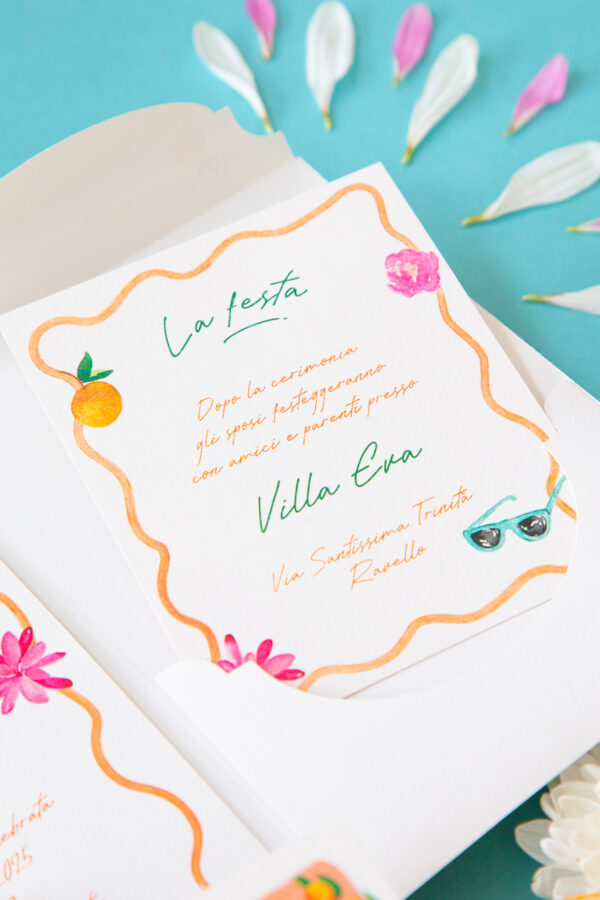 La festa
Dopo la cerimonia
gli sposi festeggeranno
con amici e parenti presso
Villa Eva
Via Santissima Trinità
Ravello
2025